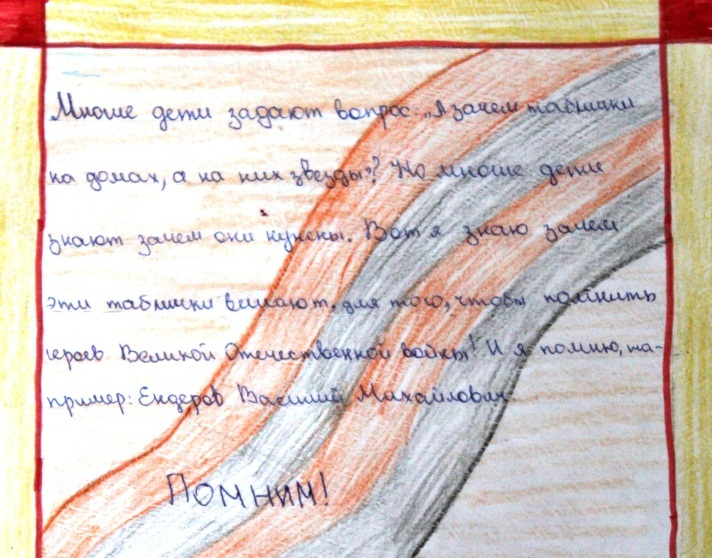 Многие дети задают вопрос: „А зачем таблички
на домах, а на них звезды"? Но многие дети
знают зачем они нужны. Вот я знаю зачем
эти таблички вешают, для того, чтобы помнить
героев Великой Отечественной войны! И я помню, на-
пример: Ендеров Василий Михайлович.
Помним!